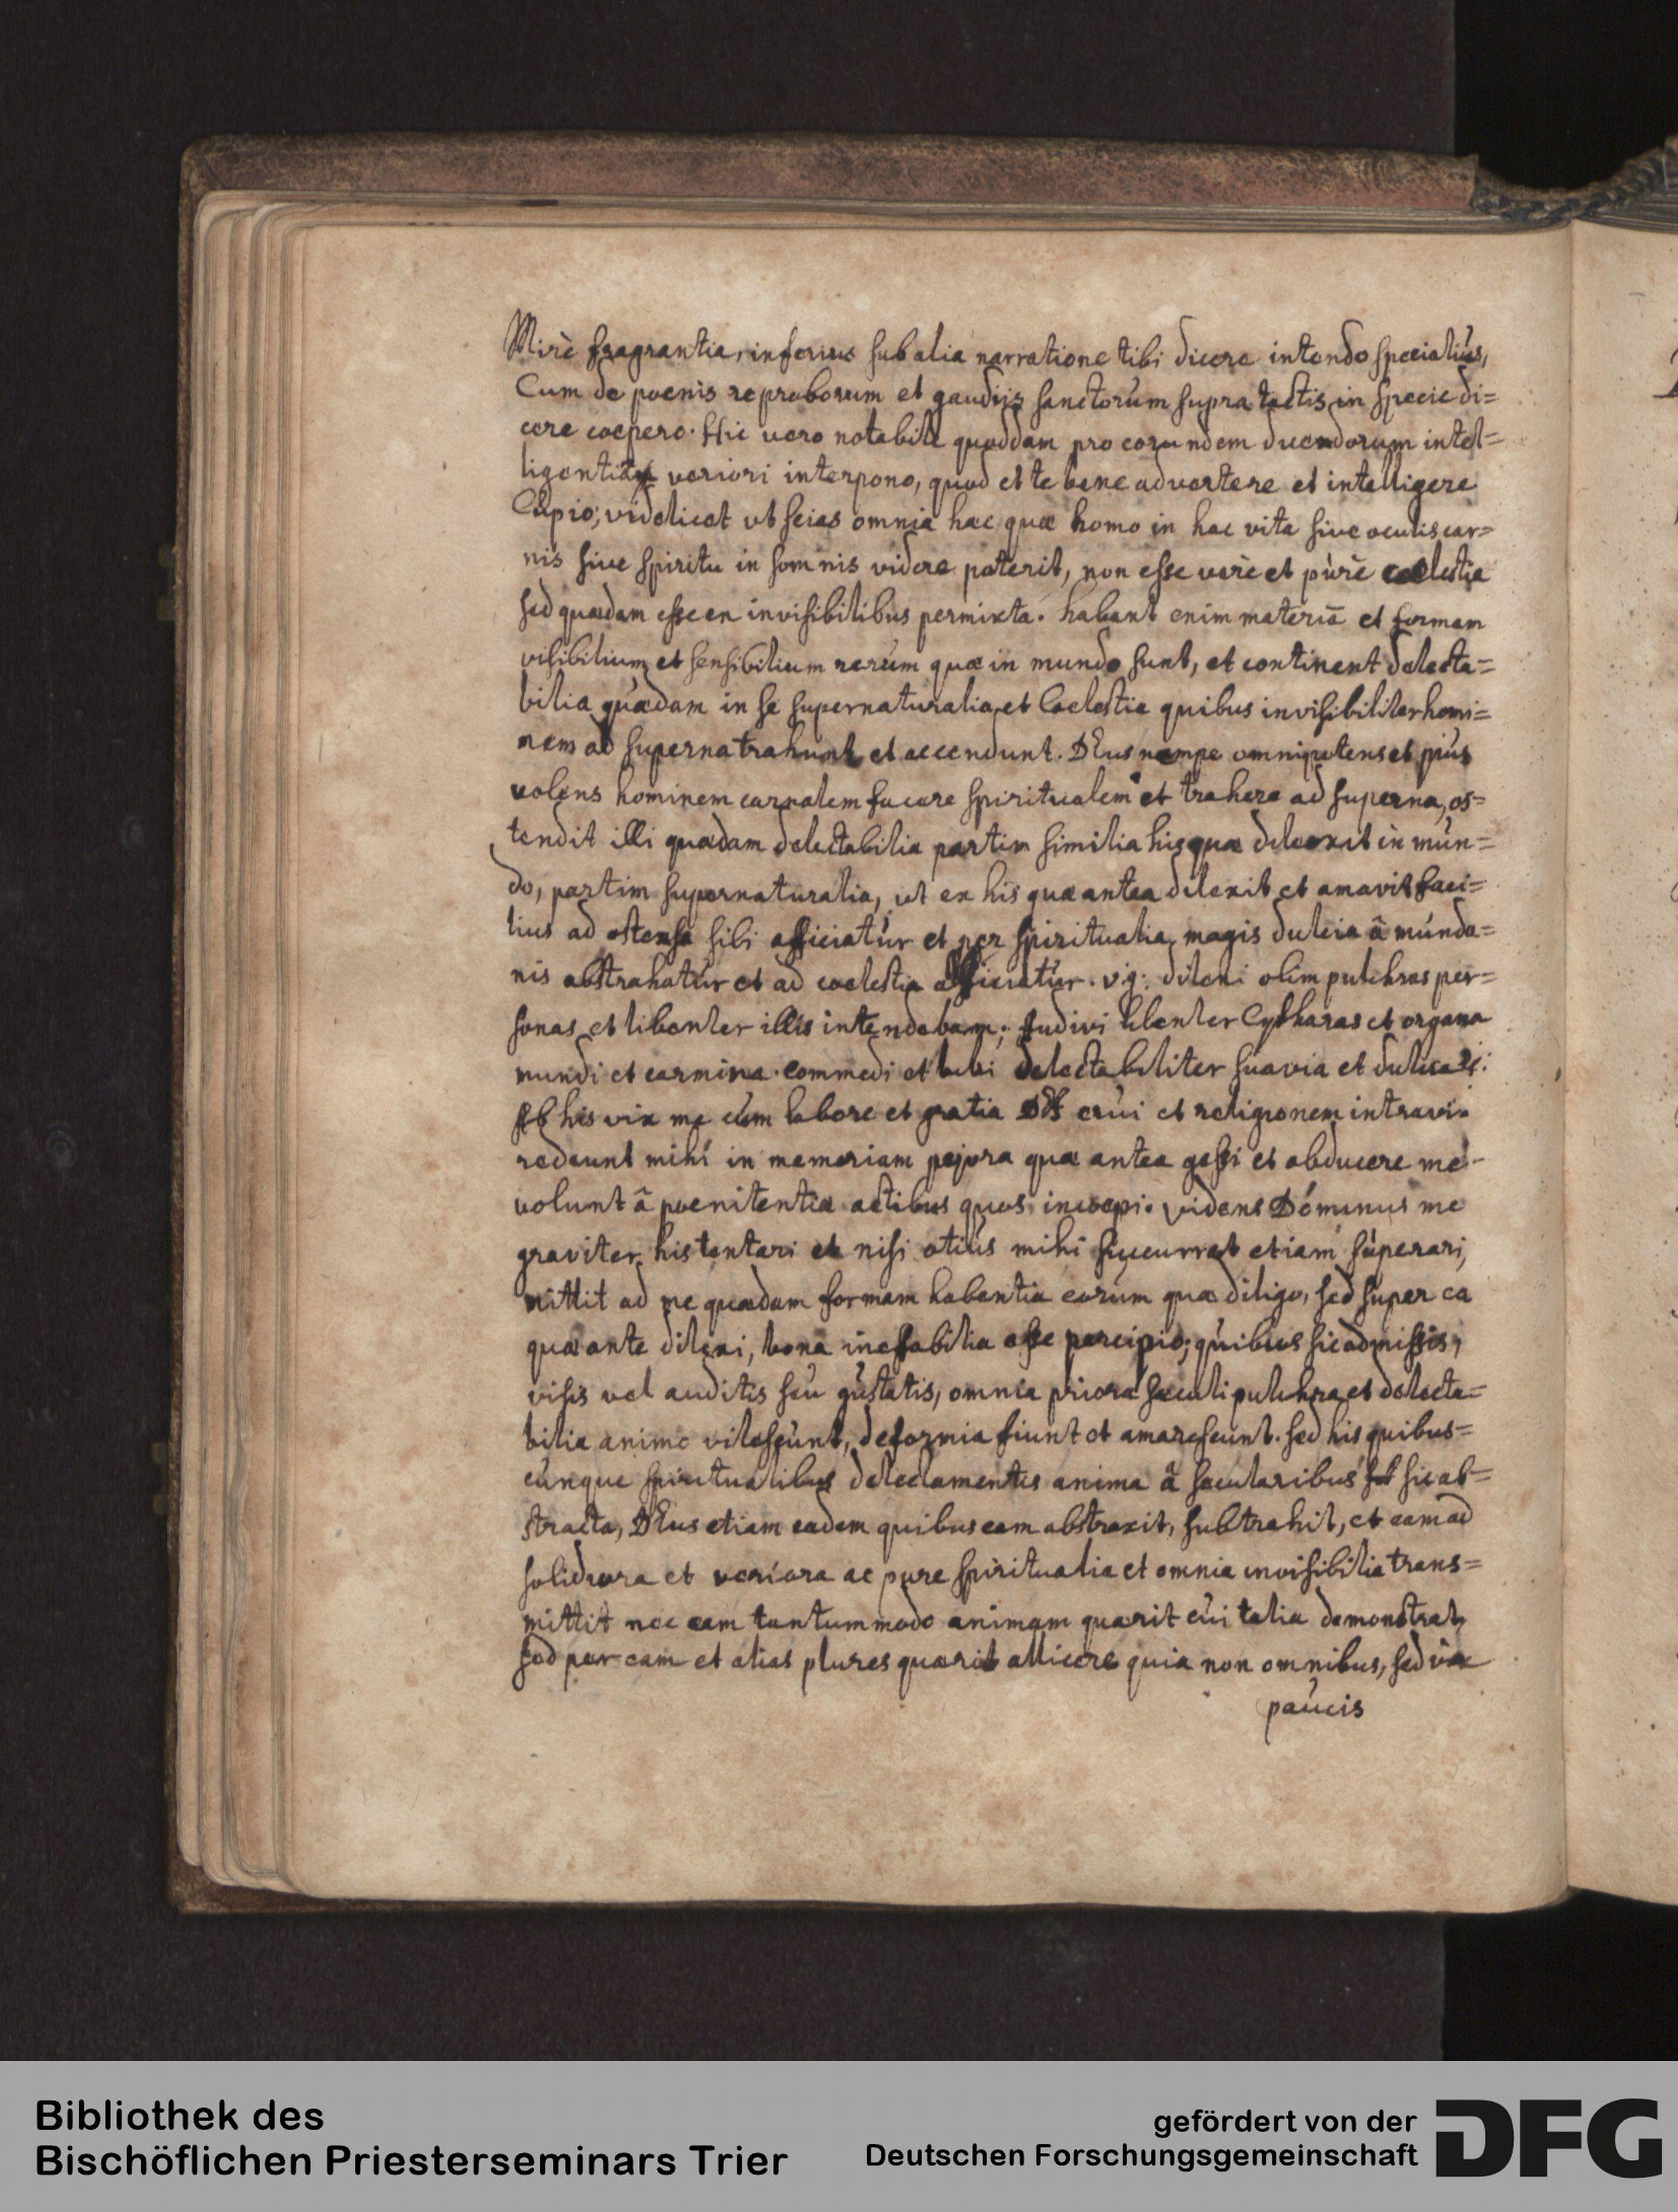 Mirè fragrantia, inferius sub alia narratione tibi dicere intendo specialiús,
Cum de poenis reproborum et gaudijs sanctorúm supra tactis in specie di=
cere coepero. Hic vero notabile quoddam pro eorundem ducendorum intel=
ligentia veriori interpono, quod et te bene advertere et intelligere
Cupio; videlicet vt scias omnia hæc quæ homo in hac vita sive oculis car=
nis sive spiritu in somnis videre poterit, non esse verè et púrè coelestia
sed quædam esse ex invisibilibus permixta. habent enim materiā et formam
visibilium et sensibilium rerúm quæ in mundo sunt, et continent delecta=
bilia quædam in se supernaturalia et Coelestia quibus invisibiliter homi=
nem ad superna trahunt et accendunt. DEus nempe omnipotens et piús
volens hominem carnalem facere spiritualem et trahere ad superna, os=
tendit illi quædam delectabilia partim similia his quæ dilexit in mún=
do, partim supernaturalia, ut ex his quæ antea dilexit et amavit faci=
lius ad ostensa sibi afficiatúr et per spiritualia magis dulcia â múnda=
nis abstrahatúr et ad coelestia afficiatúr. v.g: dilexi olim pulchras per=
sonas et libenter illis intendebam; Audivi libenter Cytharas et organa
mundi et carmina. commedi et bibi delectabiliter suavia et dulcia &c:
Ab his vix me cúm labore et gratia DEI erúi et religionem intravi.
redeunt mihi in memoriam pejora quæ antea gessi et abducere me
volunt â poenitentiæ actibus quos incoepi. videns Dóminus me
graviter his tentari et nisi otiús mihi súccurrat etiam súperari,
mittit ad me quædam formam habentia eorúm quæ diligo, sed super ea
quæ ante dilexi, bona ineffabilia esse percipio; qúibus sic admissis,
visis vel auditis seú gústatis, omnia priora sæculi pulchra et delecta=
bilia animo vilescúnt, deformia fiunt et amarescúnt. sed his quibus=
cúnque spiritualibus delectamentis anima â sæcularibus sic ab=
stracta, DEus etiam eadem quibus eam abstraxit, subtrahit, et eam ad
solidiora et veriora ac pure spiritualia et omnia invisibilia trans=
mittit nec eam tantummodo animam quærit cúi talia demonstrat,
sed per eam et alias plures quærit allicere quia non omnibus, sed vix
paúcis
Bibliothek des
Bischöflichen Priesterseminars Trier
gefördert von der
Deutschen Forschungsgemeinschaft
DFG